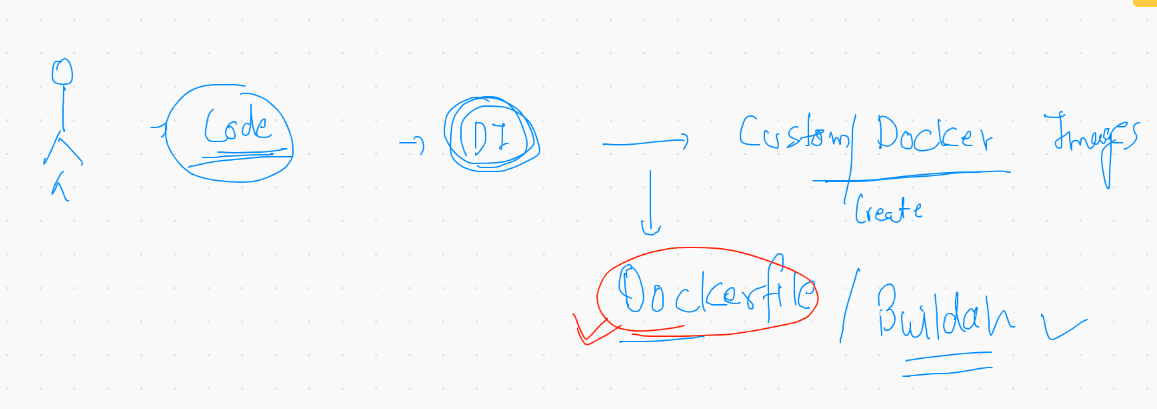 Code
DI
Custom/Docker Images
Create
Dockerfile / Buildah